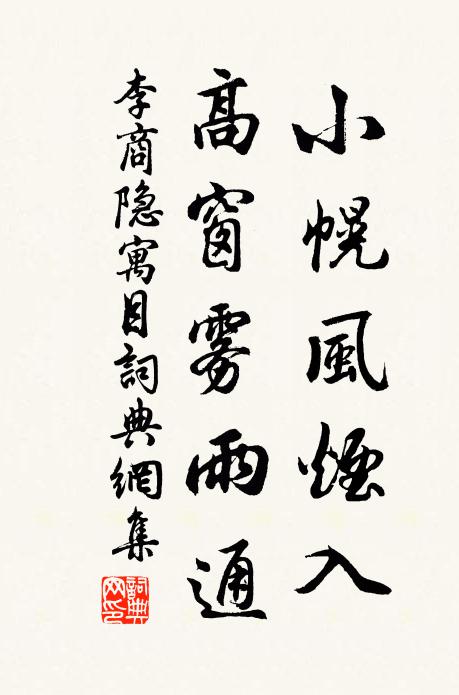 小幌風煙入
高窗雾雨通
李商隐寓目詞典網集
詞典
网印